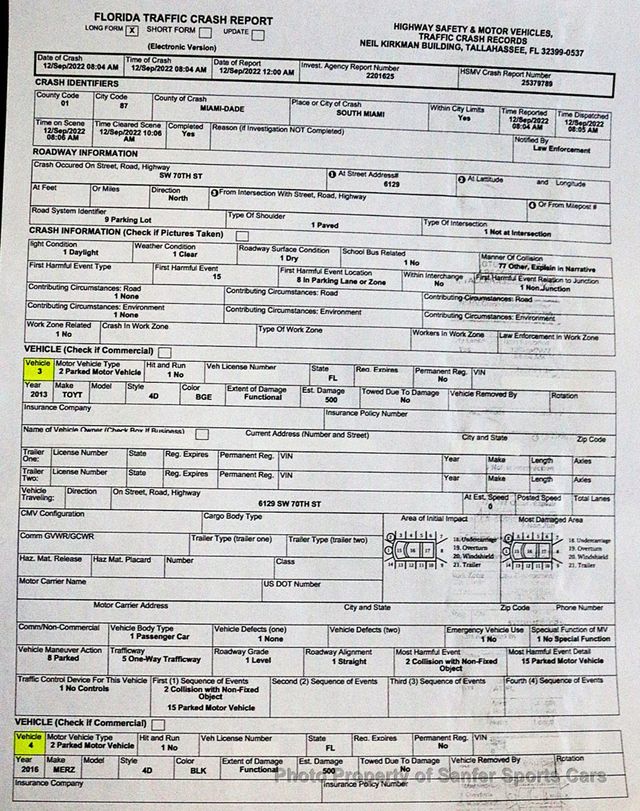 FLORIDA TRAFFIC CRASH REPORT
LONG FORM X SHORT FORM UPDATE
(Electronic Version)
HIGHWAY SAFETY & MOTOR VEHICLES,
TRAFFIC CRASH RECORDS
NEIL KIRKMAN BUILDING, TALLAHASSEE, FL 32399-0537
Date of Crash Time of Crash Date of Report Invest. Agency Report Number HSMV Crash Report Number
12/Sep/2022 08:04 AM 12/Sep/2022 08:04 AM 12/Sep/2022 12:00 AM 2201625 25379789
CRASH IDENTIFIERS
County Code City Code County of Crash Place or City of Crash Within City Limits Time Reported Time Dispatched
01 87 MIAMI-DADE SOUTH MIAMI Yes 12/Sep/2022 08:04 AM 12/Sep/2022 08:05 AM
Time on Scene Time Cleared Scene Completed Reason (if Investigation NOT Completed) Notified By
12/Sep/2022 08:06 AM 12/Sep/2022 10:06 AM Yes Law Enforcement
ROADWAY INFORMATION
Crash Occured On Street, Road, Highway 1 At Street Address# 2 At Latitude and Longitude
SW 70TH ST 6129
At Feet Or Miles Direction 3 From Intersection With Street, Road, Highway 4 Or From Milepost #
North
Road System Identifier Type Of Shoulder Type Of Intersection
9 Parking Lot 1 Paved 1 Not at Intersection
CRASH INFORMATION (Check if Pictures Taken)
light Condition Weather Condition Roadway Surface Condition School Bus Related Manner Of Collision
1 Daylight 1 Clear 1 Dry 1 No 77 Other, Explain in Narrative
First Harmful Event Type First Harmful Event First Harmful Event Location Within Interchange First Harmful Event Relation to Junction
15 8 In Parking Lane or Zone No 1 Non.Junction
Contributing Circumstances: Road Contributing Circumstances: Road Contributing Circumstances: Road
1 None
Contributing Circumstances: Environment Contributing Circumstances: Environment Contributing Circumstances: Environment
1 None
Work Zone Related Crash In Work Zone Type Of Work Zone Workers In Work Zone Law Enforcement In Work Zone
1 No
VEHICLE (Check if Commercial)
Vehicle Motor Vehicle Type Hit and Run Veh License Number State Reg. Expires Permanent Reg. VIN
3 2 Parked Motor Vehicle 1 No FL No
Year Make Model Style Color Extent of Damage Est. Damage Towed Due To Damage Vehicle Removed By Rotation
2013 TOYT 4D BGE Functional 500 No
Insurance Company Insurance Policy Number
Name of Vehicle Owner (Check Box If Business) Current Address (Number and Street) City and State Zip Code
Trailer One: License Number State Reg. Expires Permanent Reg. VIN Year Make Length Axles
Trailer Two: License Number State Reg. Expires Permanent Reg. VIN Year Make Length Axles
Vehicle Traveling: Direction On Street, Road, Highway At Est. Speed Posted Speed Total Lanes
6129 SW 70TH ST 0
CMV Configuration Cargo Body Type Area of Initial Impact Most Damaged Area
Comm GVWR/GCWR Trailer Type (trailer one) Trailer Type (trailer two)
18. Undercarriage 18. Undercarriage
19. Overturn 19. Overturn
20. Windshield 20. Windshield
21. Trailer 21. Trailer
Haz. Mat. Release Haz. Mat. Placard Number Class
Motor Carrier Name US DOT Number
Motor Carrier Address City and State Zip Code Phone Number
Comm/Non-Commercial Vehicle Body Type Vehicle Defects (one) Vehicle Defects (two) Emergency Vehicle Use Special Function of MV
1 Passenger Car 1 None 1 No 1 No Special Function
Vehicle Maneuver Action Trafficway Roadway Grade Roadway Alignment Most Harmful Event Most Harmful Event Detail
8 Parked 5 One-Way Trafficway 1 Level 1 Straight 2 Collision with Non-Fixed Object 15 Parked Motor Vehicle
Traffic Control Device For This Vehicle First (1) Sequence of Events Second (2) Sequence of Events Third (3) Sequence of Events Fourth (4) Sequence of Events
1 No Controls 2 Collision with Non-Fixed Object
15 Parked Motor Vehicle
VEHICLE (Check if Commercial)
Vehicle Motor Vehicle Type Hit and Run Veh License Number State Reg. Expires Permanent Reg. VIN
4 2 Parked Motor Vehicle 1 No FL No
Year Make Model Style Color Extent of Damage Est. Damage Towed Due To Damage Vehicle Removed By Rotation
2016 MERZ 4D BLK Functional 500 No
Photo Property of Sanfer Sports Cars
Insurance Company Insurance Policy Number